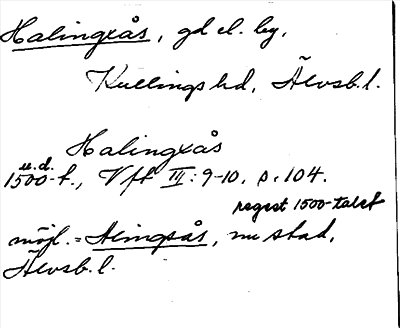 Halingxås, gd el. by,
Kullings hd, Älvsb. l.
Halingxås
u.d.
1500-t., Vft III: 9-10, s. 104.
regest 1500-talet
möjl. = Alingsås, nu stad,
Älvsb. l.